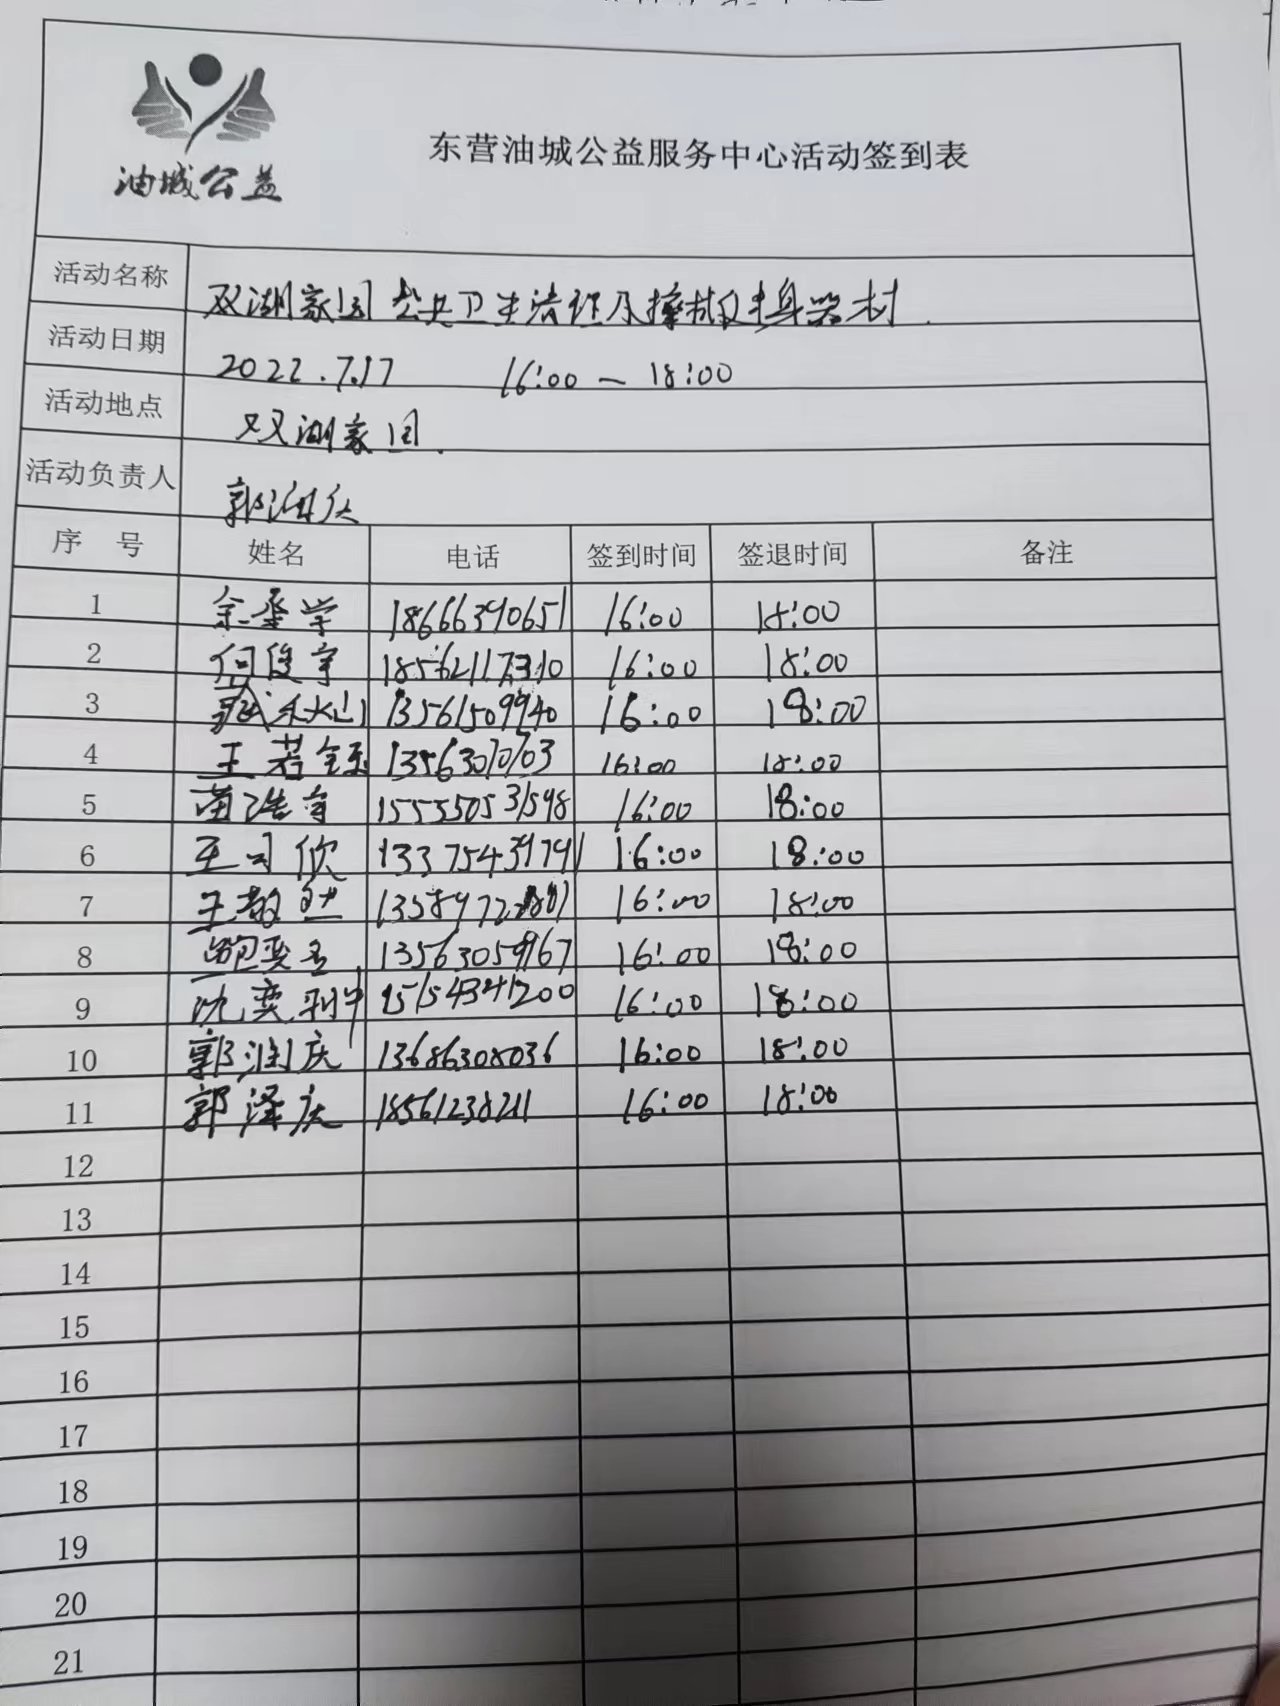 油城公益
东营油城公益服务中心活动签到表
活动名称 双湖家园公共卫生清理及擦拭健身器材.
活动日期 2022.7.17 16:00—18:00
活动地点 双湖家园.
活动负责人 郭润庆
序 号 姓名 电话 签到时间 签退时间 备注
1 18666390651 16:00 18:00
2 何俊宇 18562117310 16:00 18:00
3 13561509940 16:00 18:00
4 王若 16:00 18:00
5 苗浩宇 16:00 18:00
6 王司欣 16:00 18:00
7 王敬 16:00 18:00
8 鲍奕名 16:00 18:00
9 沈奕 15154341200 16:00 18:00
10 郭润庆 13686308036 16:00 18:00
11 郭泽庆 18561238211 16:00 18:00
12
13
14
15
16
17
18
19
20
21